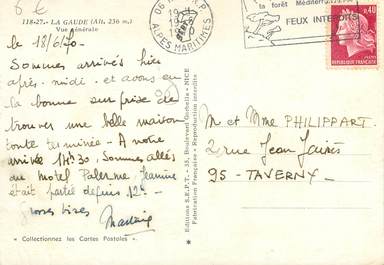 6 E
118-27. - LA GAUDE (Alt. 236 m.)
Vue générale
le 18/6/70 -
Sommes arrivés hier
après-midi et avons eu
la bonne surprise de
trouver une belle maison
toute terminée - A notre
arrivée 14h30, sommes allés
au Motel Palerme, Jeannine
était partie depuis 12h -
Grosses bises
« Collectionnez les Cartes Postales »
Editions S.E.P.T. - 35, Boulevard Gorbella - NICE
Fabrication Française - Reproduction interdite
06
ALPES MARITIMES
la forêt Méditerranéenne
FEUX INTERDITS
0,40
REPUBLIQUE FRANÇAISE
M et Mme PHILIPPART
2 rue Jean Jaurès
95 - TAVERNY -